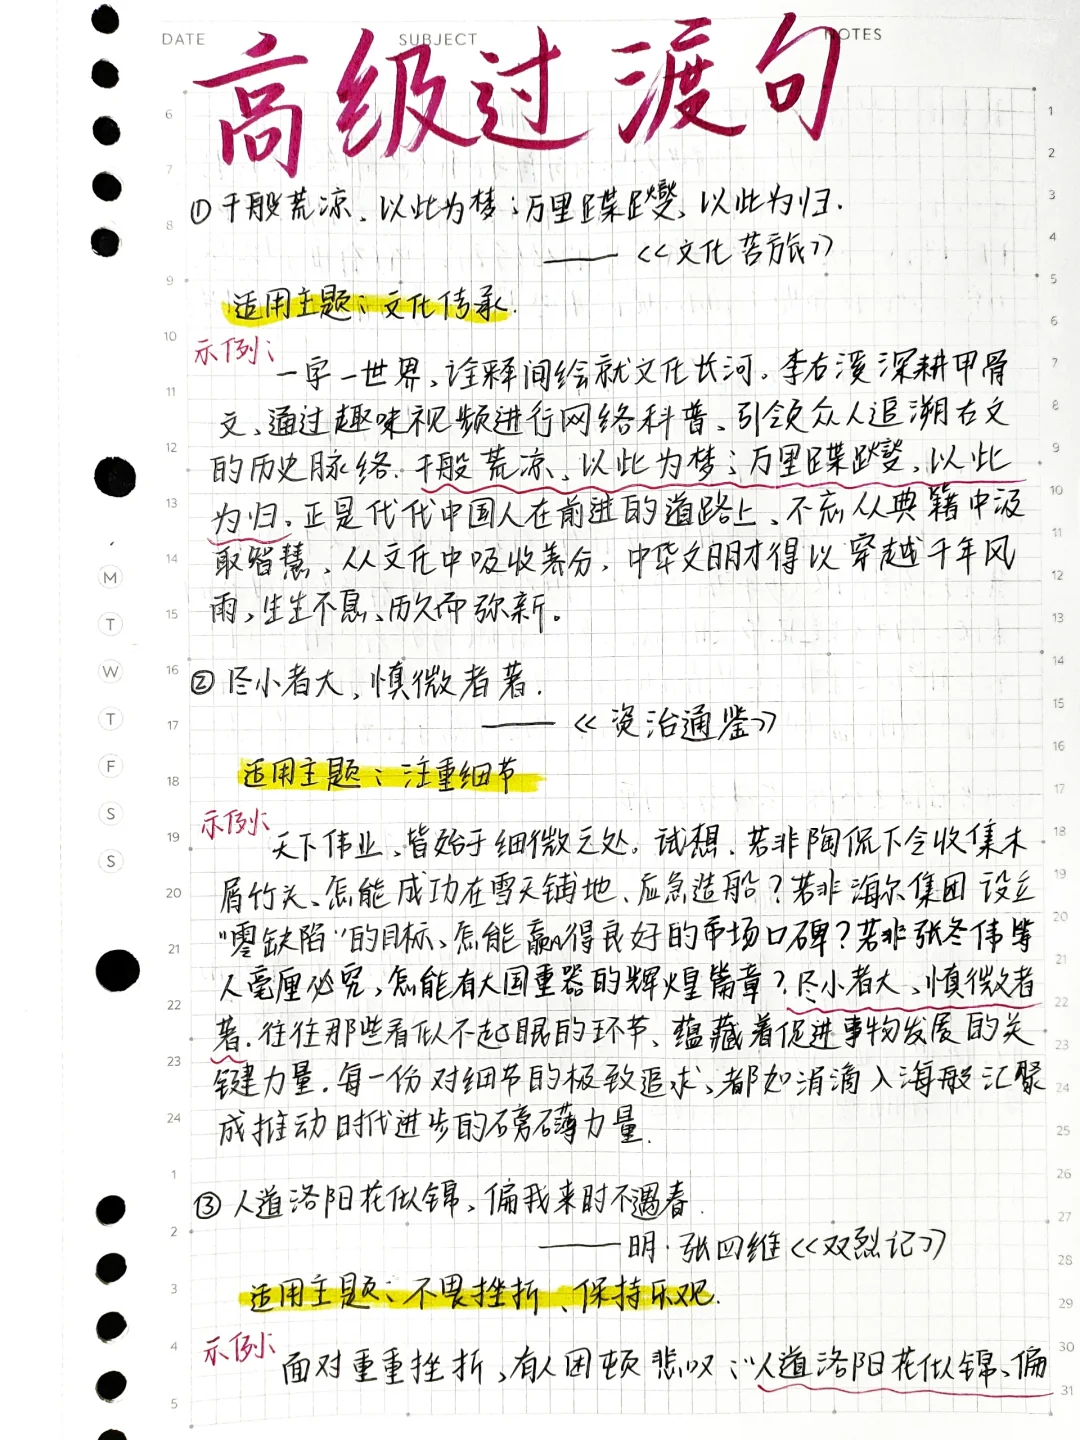 DATE SUBJECT NOTES
高级过渡句
①千般荒凉、以此为梦；万里蹀躞、以此为归.
——《文化苦旅》
适用主题：文化传承.
示例：
一字一世界、诠释间绘就文化长河。李右溪深耕甲骨
文、通过趣味视频进行网络科普、引领众人追溯古文
的历史脉络.千般荒凉、以此为梦；万里蹀躞、以此
为归。正是代代中国人在前进的道路上、不忘从典籍中汲
取智慧、从文化中吸收养分，中华文明才得以穿越千年风
雨、生生不息、历久而弥新。
②尽小者大、慎微者著.
——《资治通鉴》
适用主题：注重细节
示例：
天下伟业、皆始于细微之处。试想、若非陶侃下令收集木
屑竹头、怎能成功在雪天铺地、应急造船？若非海尔集团设立
“零缺陷”的目标、怎能赢得良好的市场口碑？若非张冬伟等
人毫厘必究、怎能有大国重器的辉煌篇章？尽小者大、慎微者
著.往往那些看似不起眼的环节、蕴藏着促进事物发展的关
键力量.每一份对细节的极致追求、都如涓滴入海般汇聚
成推动时代进步的磅礴力量.
③人道洛阳花似锦、偏我来时不遇春.
——明·张四维《双烈记》
适用主题：不畏挫折、保持乐观.
示例：
面对重重挫折、有人困顿悲叹：“人道洛阳花似锦、偏
6
7
8
9
10
11
12
13
14
15
16
17
18
19
20
21
22
23
24
1
2
3
4
5
1
2
3
4
5
6
7
8
9
10
11
12
13
14
15
16
17
18
19
20
21
22
23
24
25
26
27
28
29
30
31
M
T
W
T
F
S
S